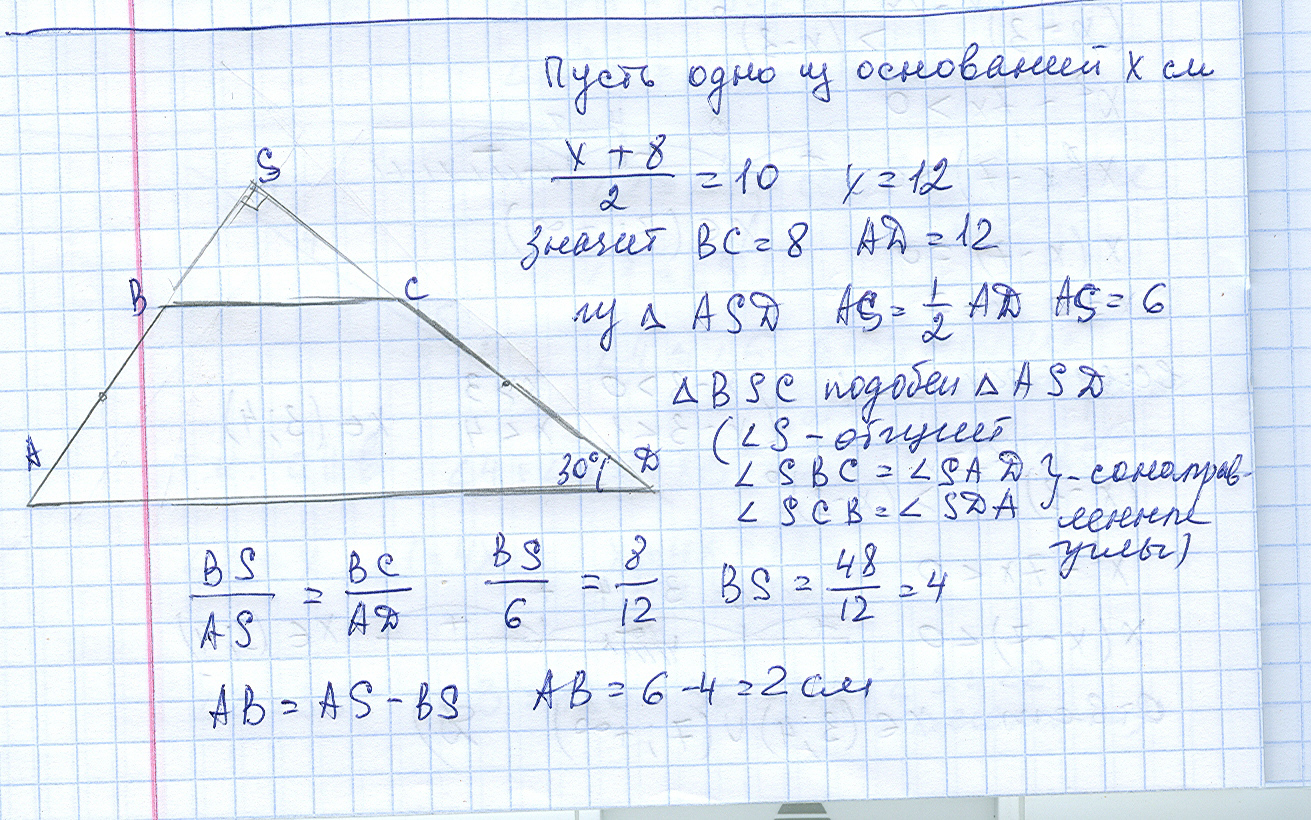 Пусть одно из оснований x см
x + 8 / 2 = 10 x = 12
Значит BC = 8 AD = 12
из Δ ASD AS = 1/2 AD AS = 6
Δ BSC подобен Δ ASD
(∠S - общий
∠SBC = ∠SAD } - сонаправ-
∠SCB = ∠SDA ленные
углы)
S
B
C
A
30°
D
BS / AS = BC / AD BS / 6 = 8 / 12 BS = 48 / 12 = 4
AB = AS - BS AB = 6 - 4 = 2 см